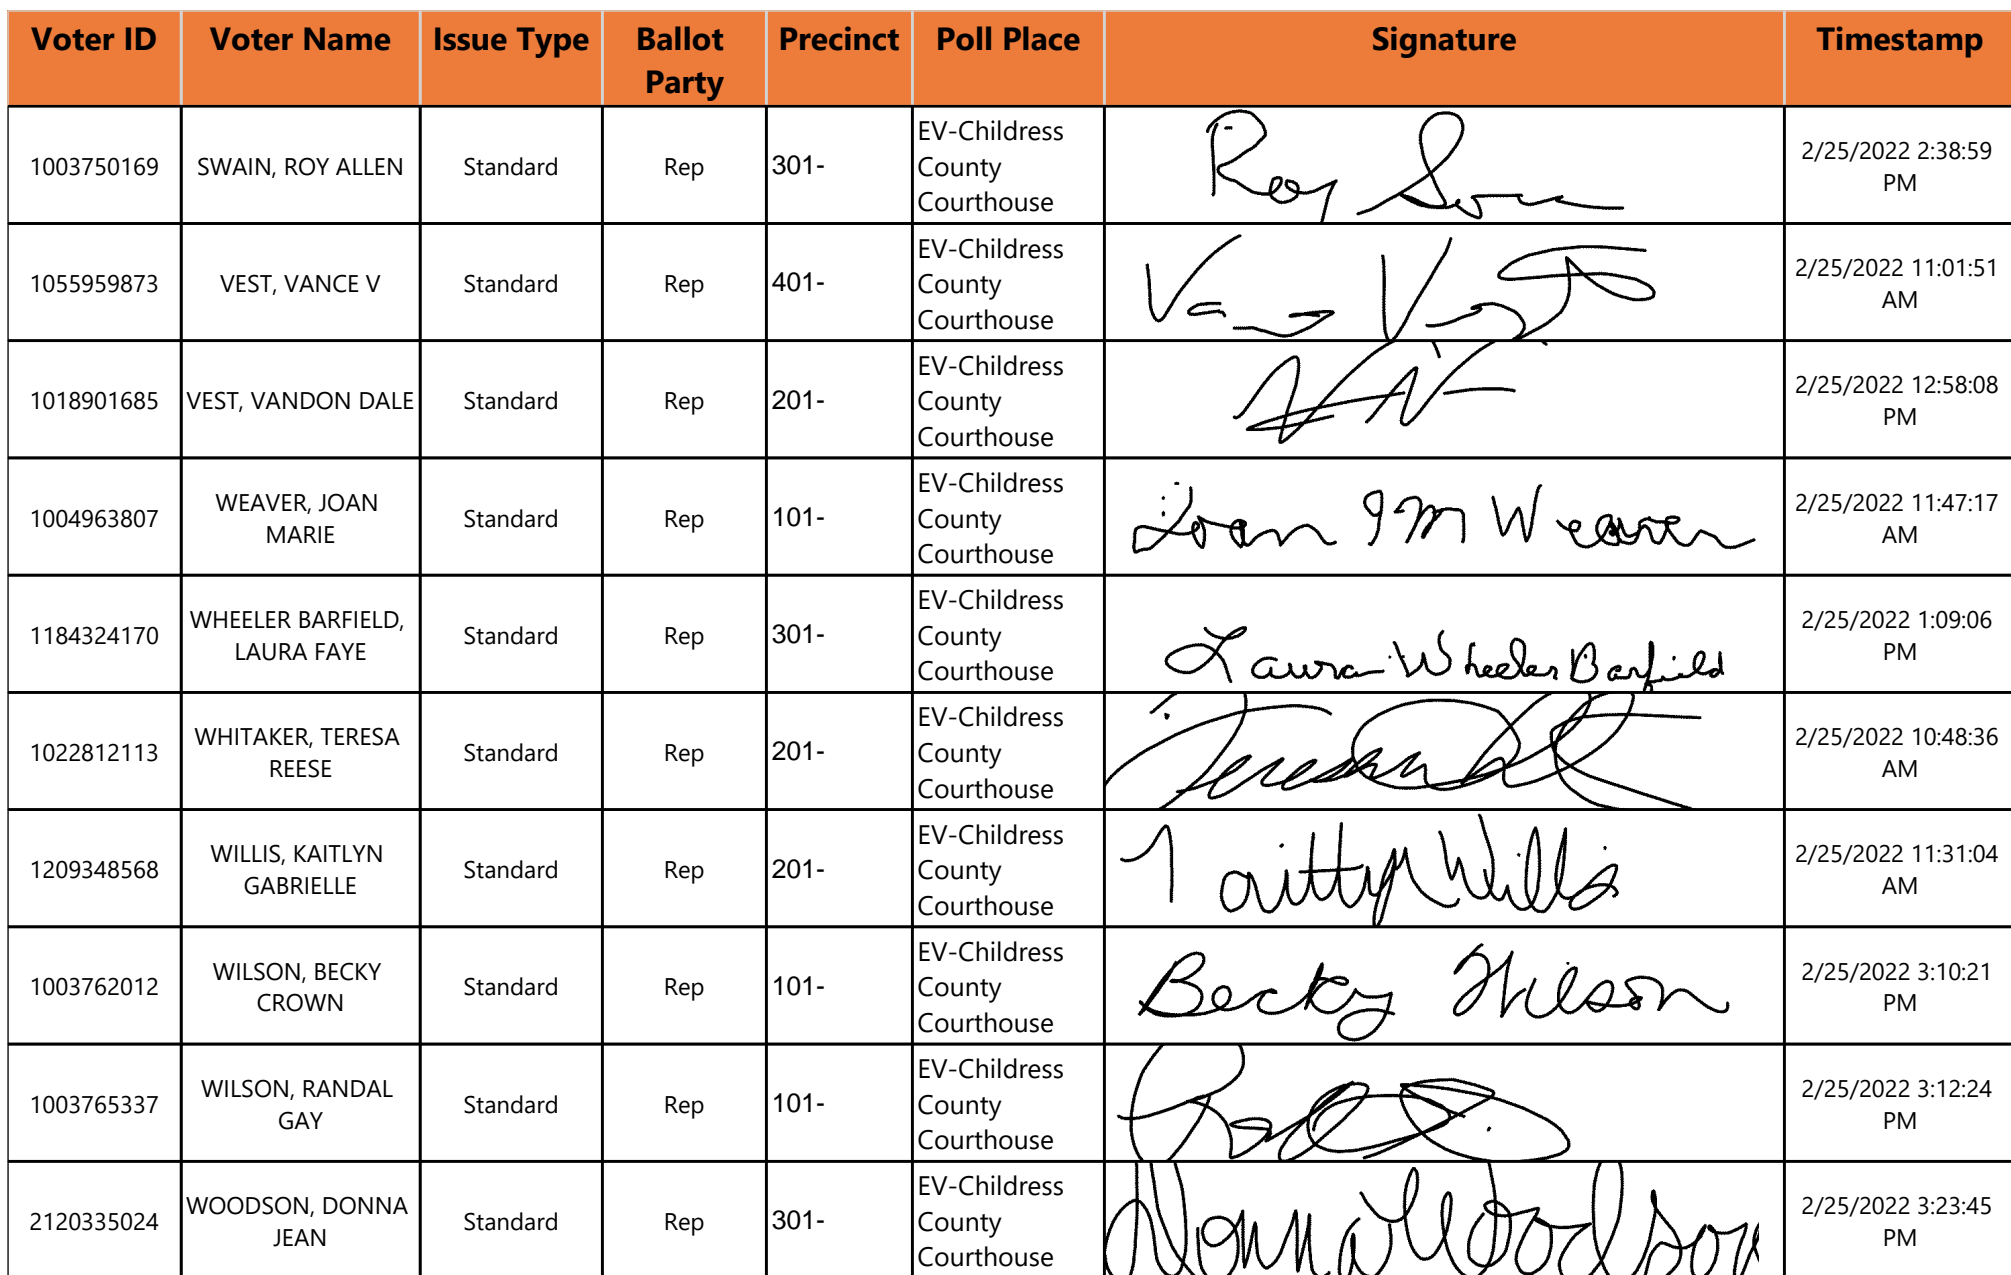 Voter ID Voter Name Issue Type Ballot Party Precinct Poll Place Signature Timestamp
1003750169 SWAIN, ROY ALLEN Standard Rep 301- EV-Childress County Courthouse Roy 2/25/2022 2:38:59 PM
1055959873 VEST, VANCE V Standard Rep 401- EV-Childress County Courthouse 2/25/2022 11:01:51 AM
1018901685 VEST, VANDON DALE Standard Rep 201- EV-Childress County Courthouse 2/25/2022 12:58:08 PM
1004963807 WEAVER, JOAN MARIE Standard Rep 101- EV-Childress County Courthouse Joan M Weaver 2/25/2022 11:47:17 AM
1184324170 WHEELER BARFIELD, LAURA FAYE Standard Rep 301- EV-Childress County Courthouse Laura Wheeler Barfield 2/25/2022 1:09:06 PM
1022812113 WHITAKER, TERESA REESE Standard Rep 201- EV-Childress County Courthouse Teresa 2/25/2022 10:48:36 AM
1209348568 WILLIS, KAITLYN GABRIELLE Standard Rep 201- EV-Childress County Courthouse Willis 2/25/2022 11:31:04 AM
1003762012 WILSON, BECKY CROWN Standard Rep 101- EV-Childress County Courthouse Becky Wilson 2/25/2022 3:10:21 PM
1003765337 WILSON, RANDAL GAY Standard Rep 101- EV-Childress County Courthouse 2/25/2022 3:12:24 PM
2120335024 WOODSON, DONNA JEAN Standard Rep 301- EV-Childress County Courthouse Donna Woodson 2/25/2022 3:23:45 PM